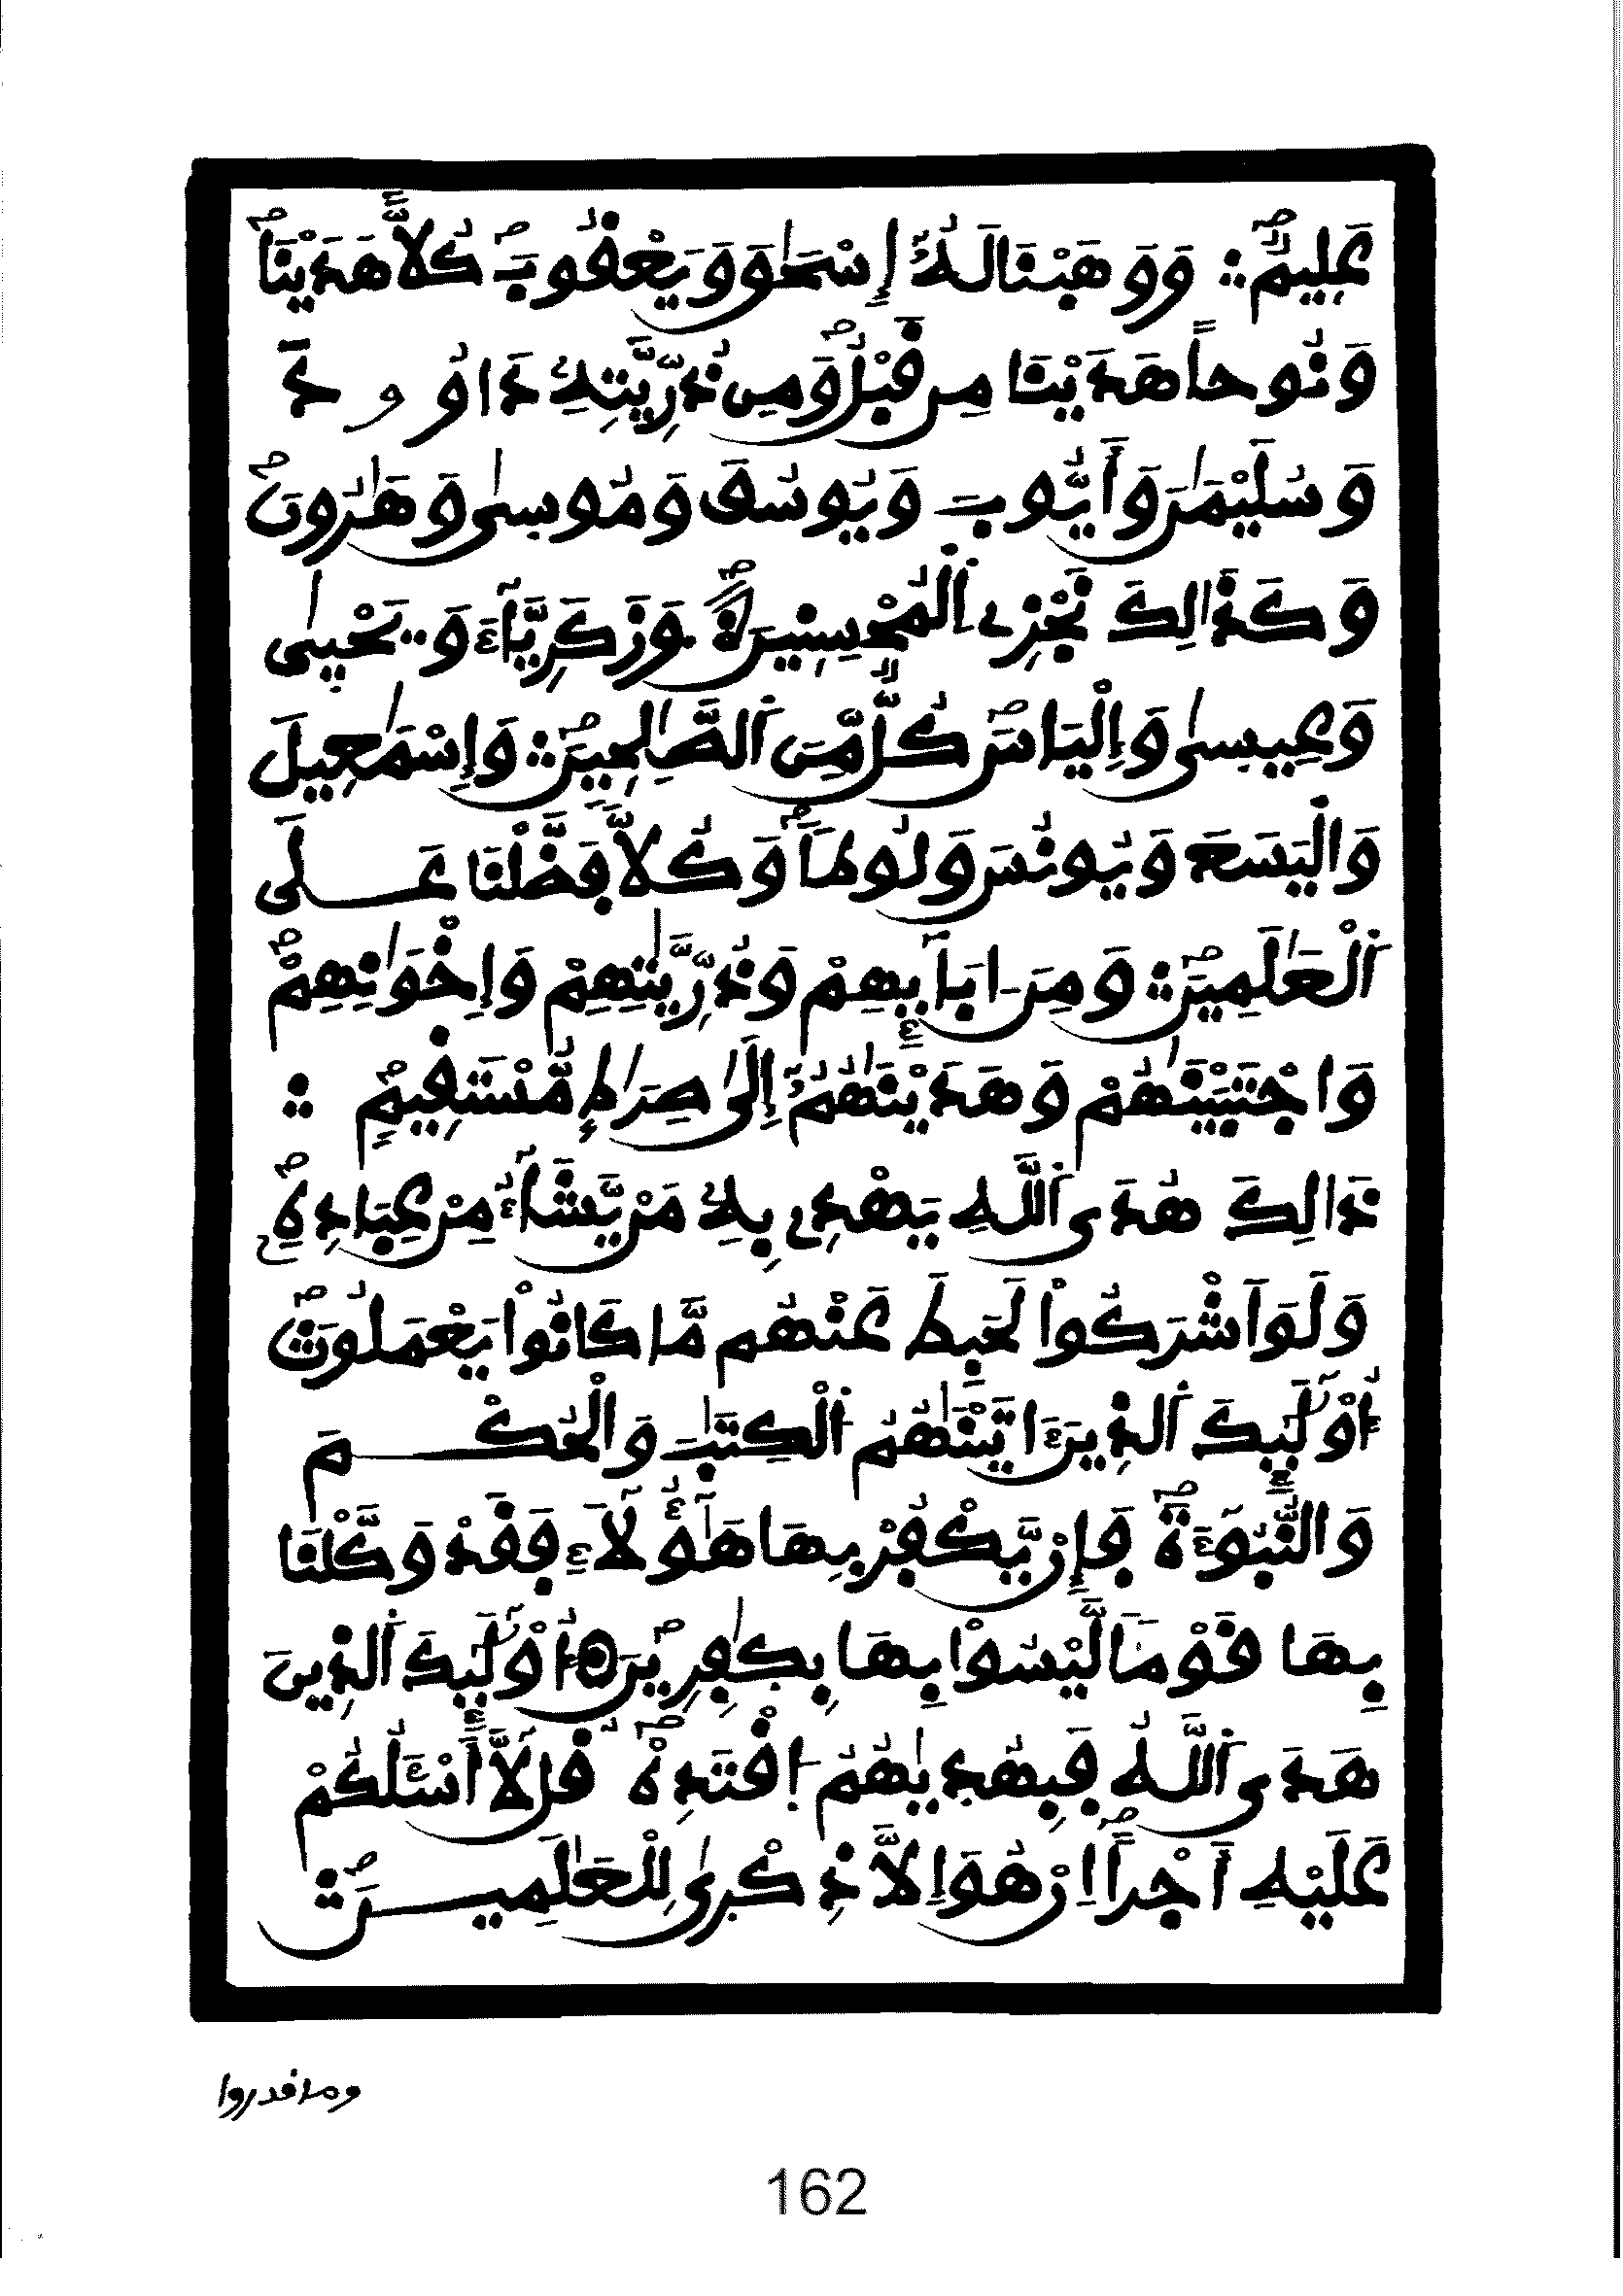 عَلِيمٌ وَوَهَبْنَا لَهُ إِسْحَٰقَ وَيَعْقُوبَ كُلّاً هَدَيْنَا
وَنُوحاً هَدَيْنَا مِن قَبْلُ وَمِن ذُرِّيَّتِهِ دَاوُۥدَ
وَسُلَيْمَٰنَ وَأَيُّوبَ وَيُوسُفَ وَمُوسىٰ وَهَٰرُونَ
وَكَذَٰلِكَ نَجْزِے اِ۬لْمُحْسِنِينَ وَزَكَرِيَّآءَ وَيَحْيىٰ
وَعِيسىٰ وَإِلْيَاسَ كُلٌّ مِّنَ اَ۬لصَّٰلِحِينَ وَإِسْمَٰعِيلَ
وَالْيَسَعَ وَيُونُسَ وَلُوطاً وَكُلّاً فَضَّلْنَا عَلَى
اَ۬لْعَٰلَمِينَ وَمِنَ اٰبَآئِهِمْ وَذُرِّيَّٰتِهِمْ وَإِخْوَٰنِهِمْ
وَاجْتَبَيْنَٰهُمْ وَهَدَيْنَٰهُمُ إِلَىٰ صِرَٰطٍ مُّسْتَقِيمٍ
ذَٰلِكَ هُدَى اَ۬للَّهِ يَهْدِے بِهِ مَنْ يَّشَآءُ مِنْ عِبَادِهِ
وَلَوَ اَشْرَكُواْ لَحَبِطَ عَنْهُم مَّا كَانُواْ يَعْمَلُونَ
أُوْلَٰٓئِكَ اَ۬لذِينَ ءَاتَيْنَٰهُمُ اُ۬لْكِتَٰبَ وَالْحُكْمَ
وَالنُّبُوٓءَةَ فَإِنْ يَّكْفُرْ بِهَا هَٰٓؤُلَآءِ فَقَدْ وَكَّلْنَا
بِهَا قَوْماً لَّيْسُواْ بِهَا بِكَٰفِرِينَ أُوْلَٰٓئِكَ اَ۬لذِينَ
هَدَى اَ۬للَّهُ فَبِهُدَىٰهُمُ اُ۪قْتَدِهْ قُل لَّآ أَسْـَٔلُكُمْ
عَلَيْهِ أَجْراً اِنْ هُوَ إِلَّا ذِكْرىٰ لِلْعَٰلَمِينَ
وما قدروا
162